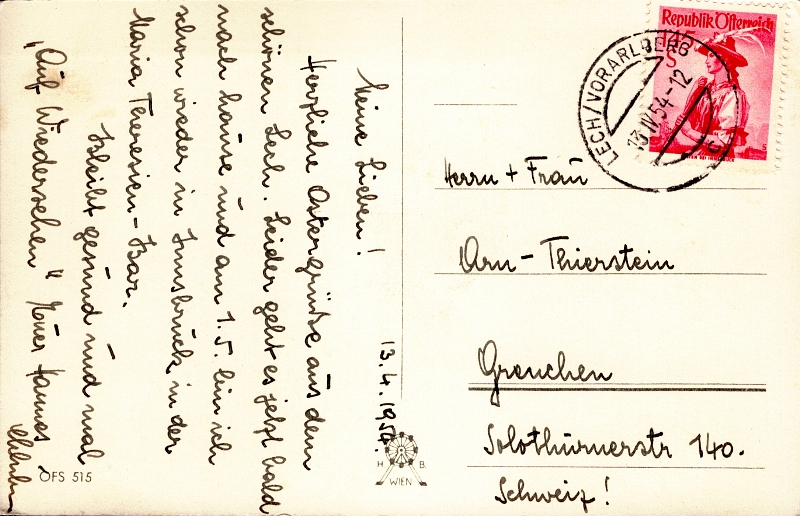 13.4.1954.
Meine Lieben!
Herzliche Ostergrüße aus dem
schönen Lech. Leider geht es jetzt bald
nach hause und am 1.5. bin ich
schon wieder in Innsbruck in der
Maria Theresien-Bar.
Bleibt gesund und mal
"Auf Wiedersehen" Euer Hannes
ÖFS 515
H. B.
WIEN
Republik Österreich
1.45
S
LECH/VORARLBERG
13.IV.54-12
Herrn + Frau
Arn-Thierstein
Grenchen
Solothurnerstr 140.
Schweiz!